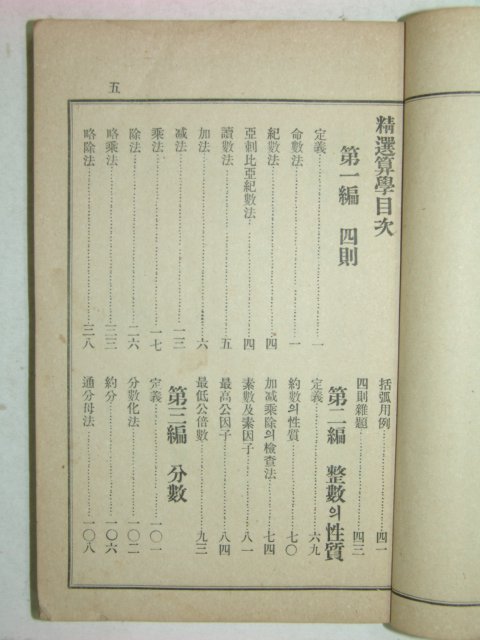 精選算學目次
第一編 四則
定義 一
命數法 一
紀數法 四
亞剌比亞紀數法 四
讀數法 五
加法 六
減法 一三
乘法 一七
除法 二六
略乘法 三三
略除法 三八
括弧用例 四一
四則雜題 四三
第二編 整數의性質
定義 六九
約數의性質 七〇
加減乘除의檢查法 七四
素數及素因子 八一
最高公因子 八四
最低公倍數 九三
第三編 分數
定義 一〇一
分數化法 一〇二
約分 一〇六
通分母法 一〇八
五